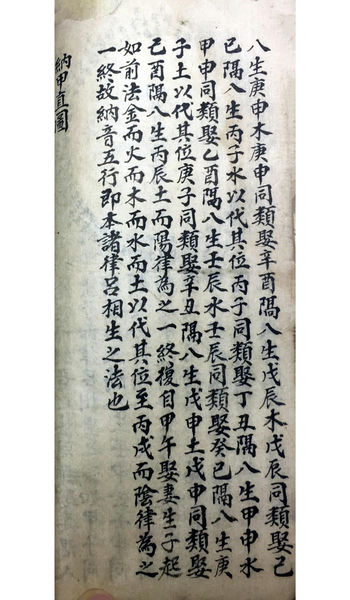 八生庚申木庚申同類娶辛酉隔八生戊辰木戊辰同類娶己
巳隔八生丙子水以代其位丙子同類娶丁丑隔八生甲申水
甲申同類娶乙酉隔八生壬辰水壬辰同類娶癸巳隔八生庚
子土以代其位庚子同類娶辛丑隔八生戊申土戊申同類娶
己酉隔八生丙辰土而陽律為之一終復自甲午娶妻生子起
如前法金而火而木而水而土以代其位至丙戌而陰律為之
一終故納音五行即本諸律呂相生之法也
納甲直圖